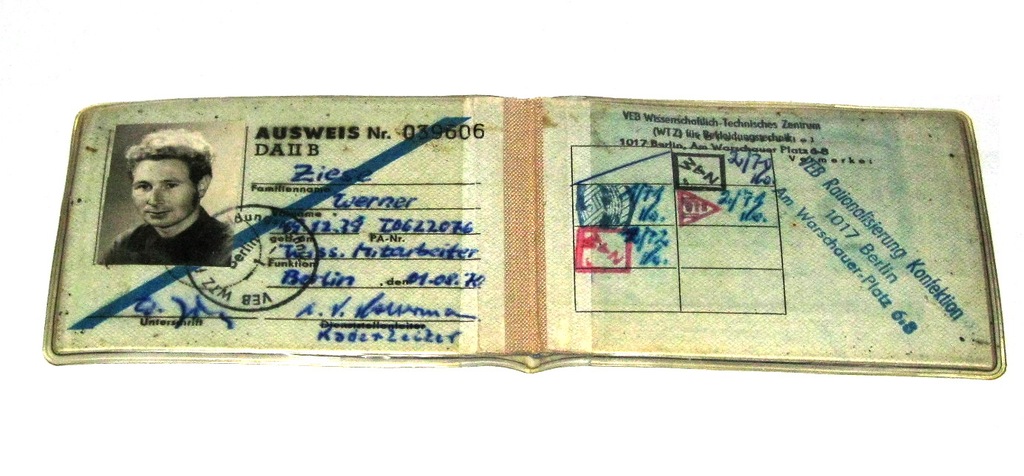 AUSWEIS Nr. 039606
DA II B
Ziese
Familienname
Werner
Vorname
12.39
geb. am PA-Nr.
Wiss. Mitarbeiter
Funktion
Berlin , den 01.08.70
Unterschrift
Dienststellenleiter
Kaderleiter
VEB WTZ
Berlin
VEB Wissenschaftlich-Technisches Zentrum
(WTZ) für Bekleidungstechnik
1017 Berlin, Am Warschauer Platz 6-8
Vermerke:
VEB Rationalisierung Konfektion
1017 Berlin
Am Warschauer-Platz 6-8